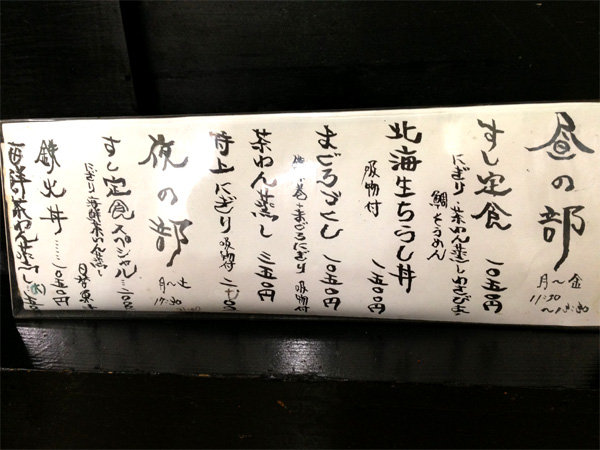 昼の部
月〜金
11:30
すし定食 一〇五〇円
にぎり 茶わん蒸し
鯛そうめん
北海生ちらし丼 一五〇〇円
吸物付
まぐろづくし 一〇五〇円
まぐろにぎり 吸物付
茶わん蒸し 三五〇円
特上にぎり 吸物付
夜の部
月〜土
17:30
すし定食スペシャル
にぎり 海鮮茶わん蒸し
鉄火丼……一〇五〇円
海鮮茶わん蒸し